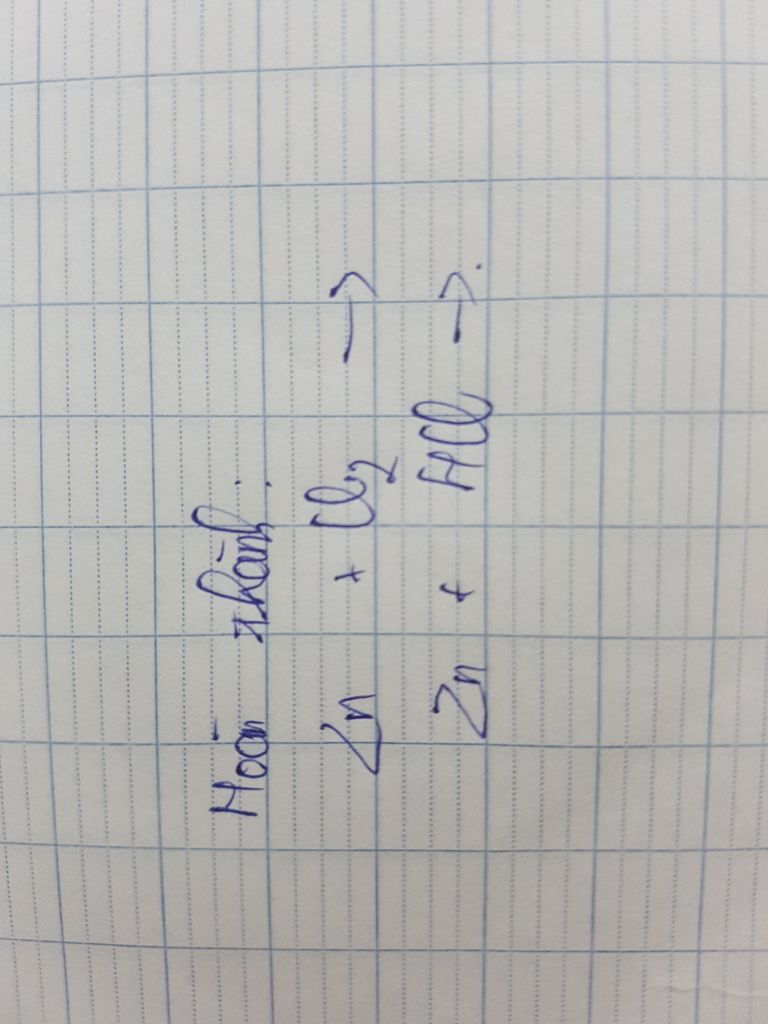 Hoàn thành:
Zn + Cl2 →
Zn + HCl →.